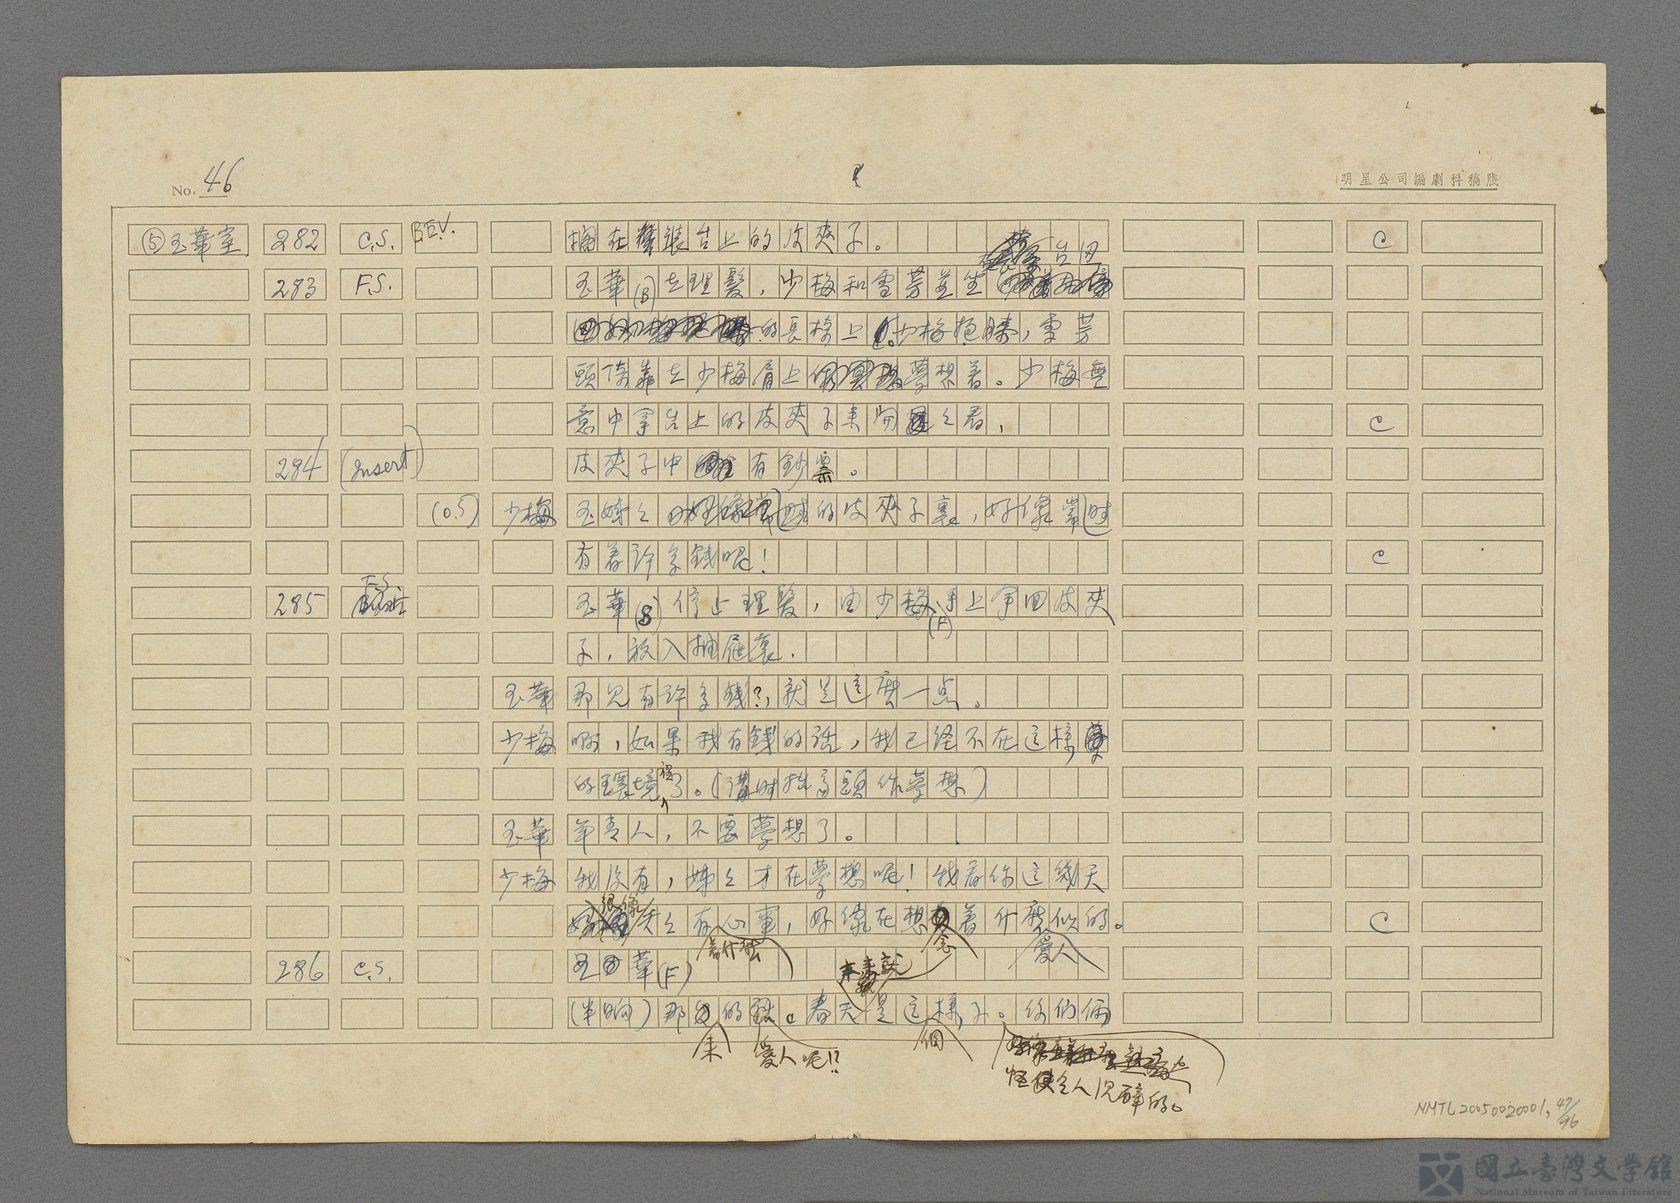 No. 46
明星公司編劇科稿牋
⑤玉華室 282 C.S. B.E.V. 擱在裝台上的皮夾子。 C
283 F.S. 玉華(B)在理髮,少梅和雪芳並坐
的長櫈上。少梅抱膝,雪芳
頭倚靠在少梅肩上夢想着。少梅無
意中拿台上的皮夾子來開之看, C
284 (Insert) 皮夾子中有鈔票。
(O.S) 少梅 玉姊之的皮夾子裏,好像常時
有着許多錢呢! C
285 F.S. 玉華(S)停止理髮,由少梅(F)手上拿回皮夾
子,放入抽屜裏.
玉華 那兒有許多錢?,就是這麽一点。
少梅 啊,如果我有錢的話,我已经不在這樣
的環境裡了。(講时抬高頭作夢想)
玉華 年青人,不要夢想了。
少梅 我没有,姊之才在夢想呢!我看你這幾天
很像天之有心事,好像在想着什麽似的。 C
着什麽 念 愛人
286 C.S. 玉華(F)
本來就
(半晌)那的話。春天是這樣子。你們倆
來 愛人呢!? 個
怪使之人沉醉的。
NMTL20050020001, 47/96
國立臺灣文學館
National Museum of Taiwan Literature